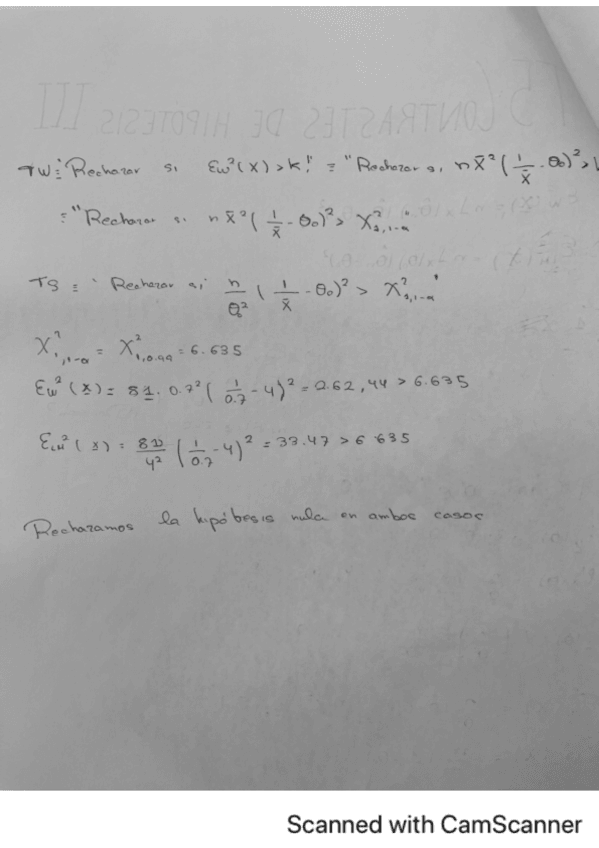 CONTRASTES DE HIPÓTESIS III
TW: "Rechazar si Ew²(X) > k!" = "Rechazar si n x̄² (1/x̄ - θ₀)² >
= "Rechazar si n x̄² (1/x̄ - θ₀)² > X²₁,₁₋α"
TS = "Rechazar si n/θ² (1/x̄ - θ₀)² > X²₁,₁₋α"
X²₁,₁₋α = X²₁,₀.₉₉ = 6.635
Ew²(x) = 81. 0.7² (1/0.7 - 4)² = 262,44 > 6.635
(x) = (1/0.7 - 4)² = 33.47 > 6.635
Rechazamos la hipótesis nula en ambos casos
Scanned with CamScanner